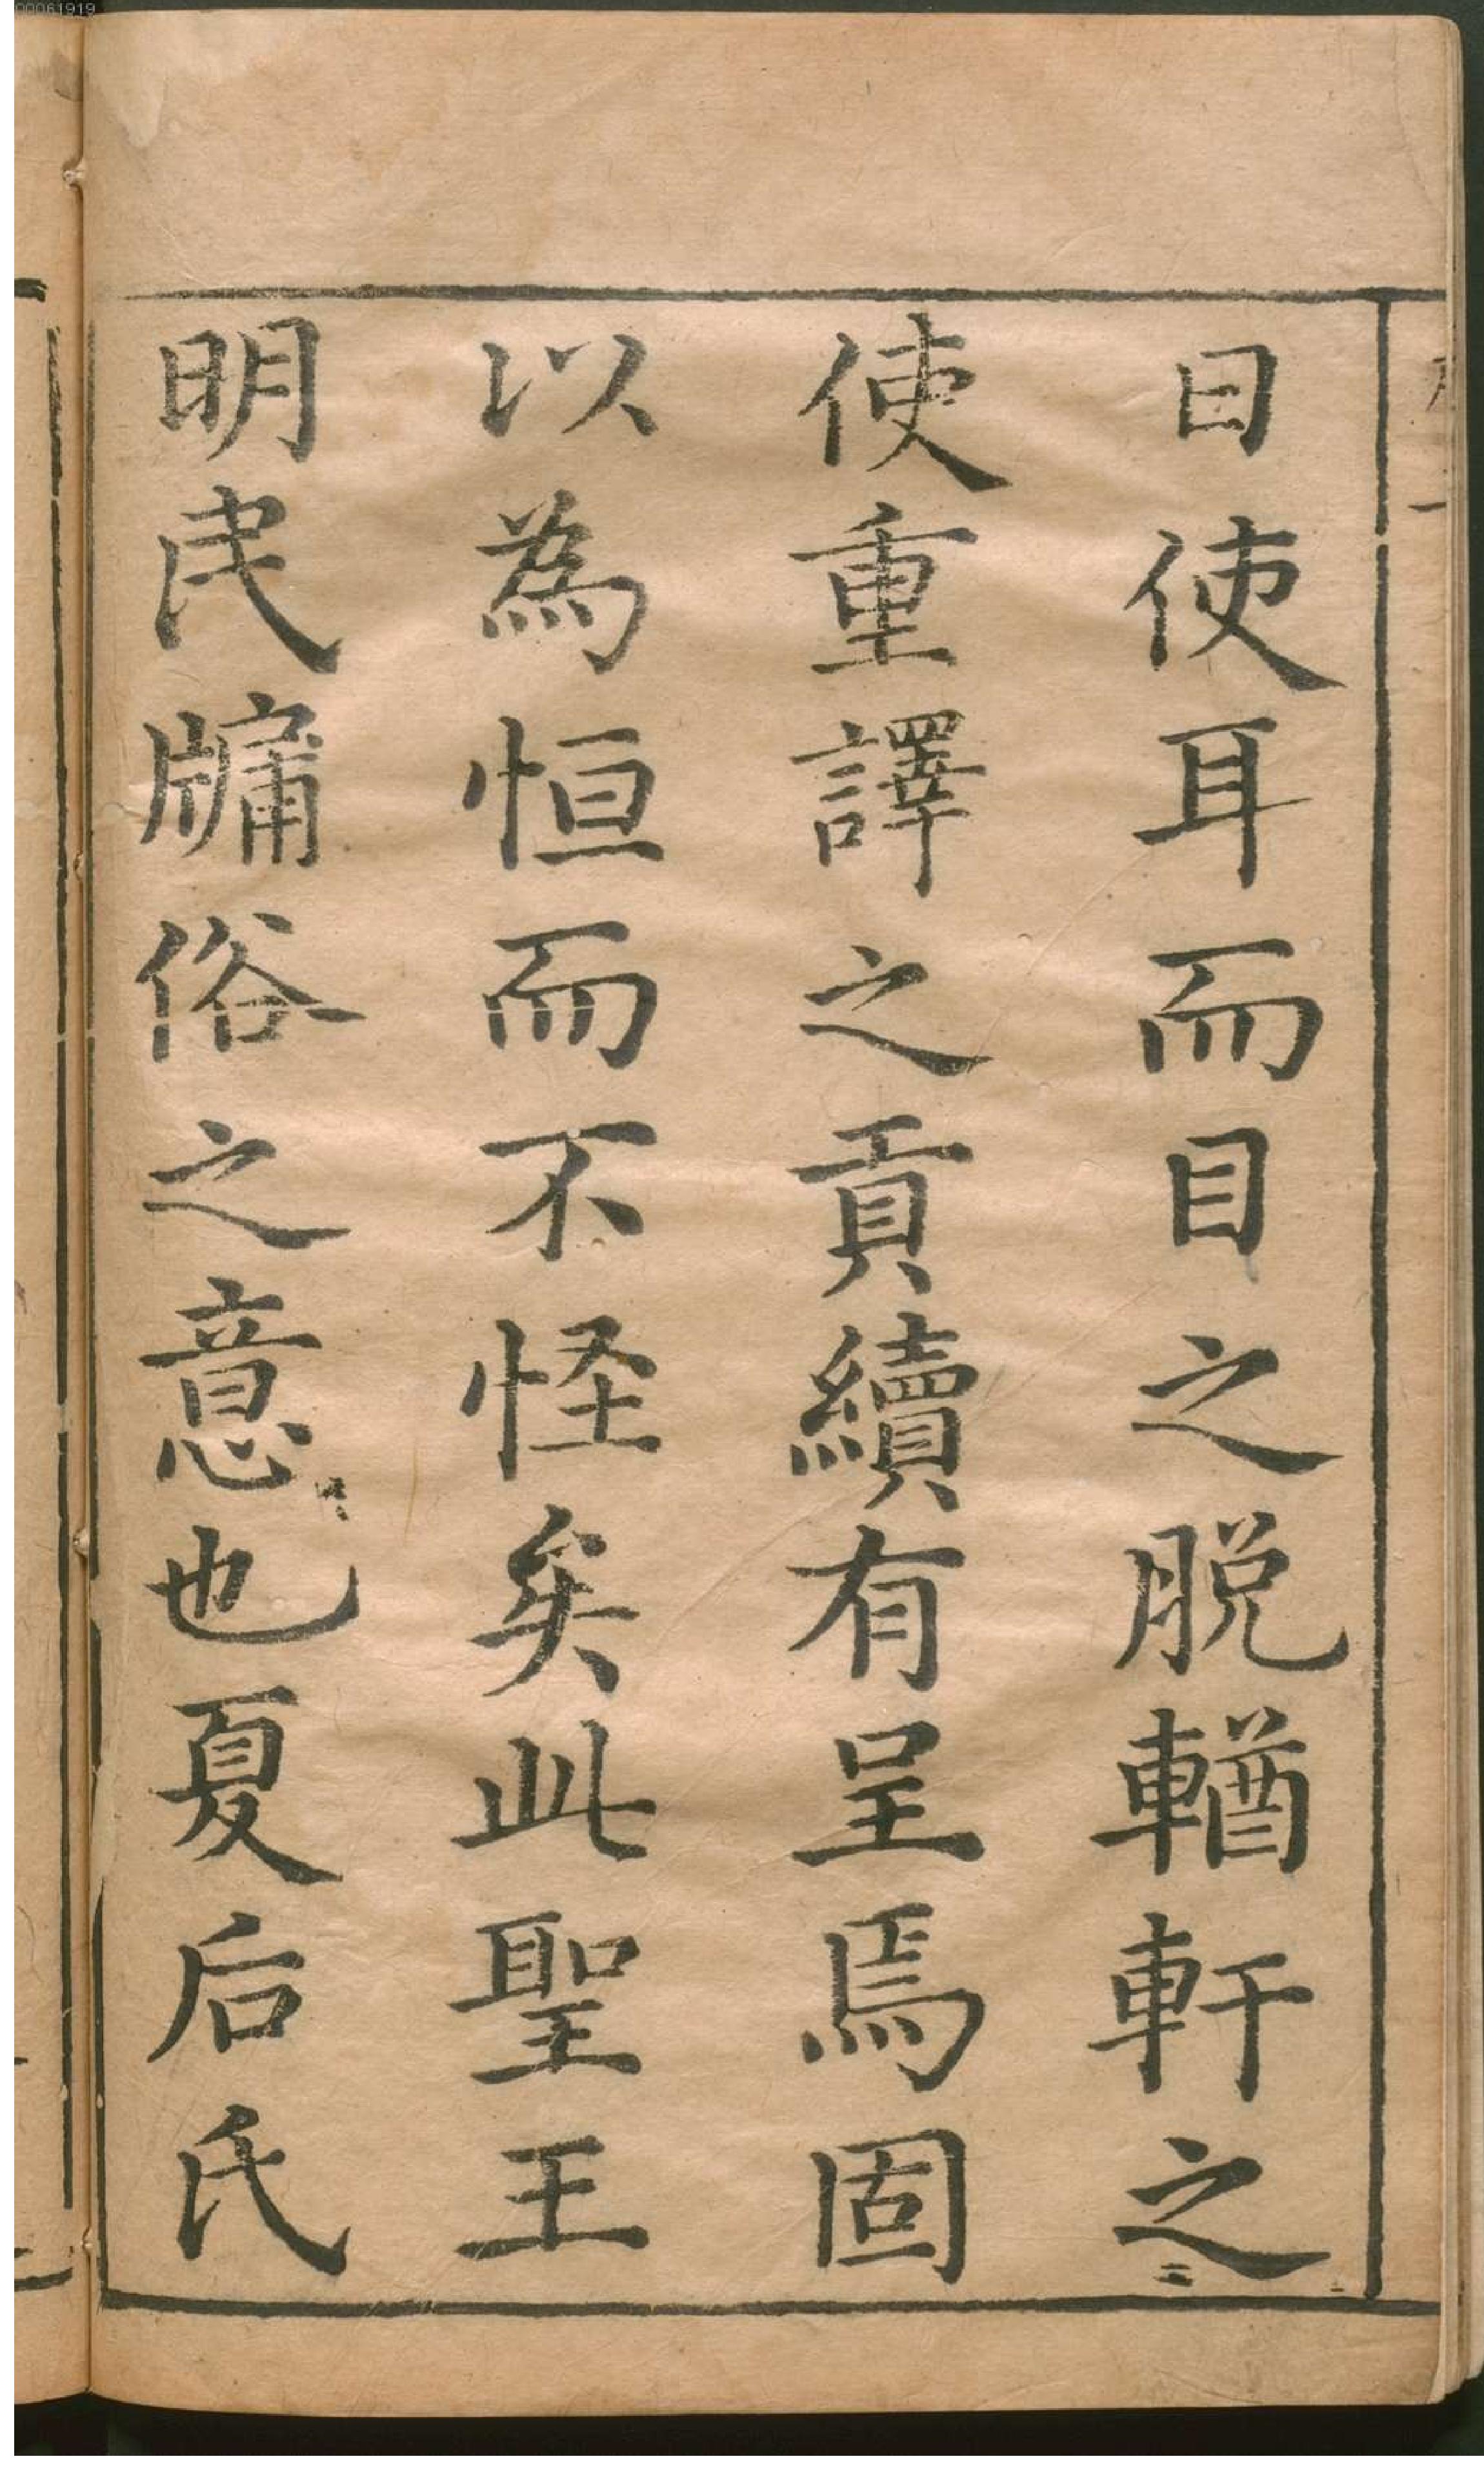 日使耳而目之脱輶軒之
使重譯之貢續有呈焉固
以為恒而不怪矣此聖王
明民牖俗之意也夏后氏
00061919